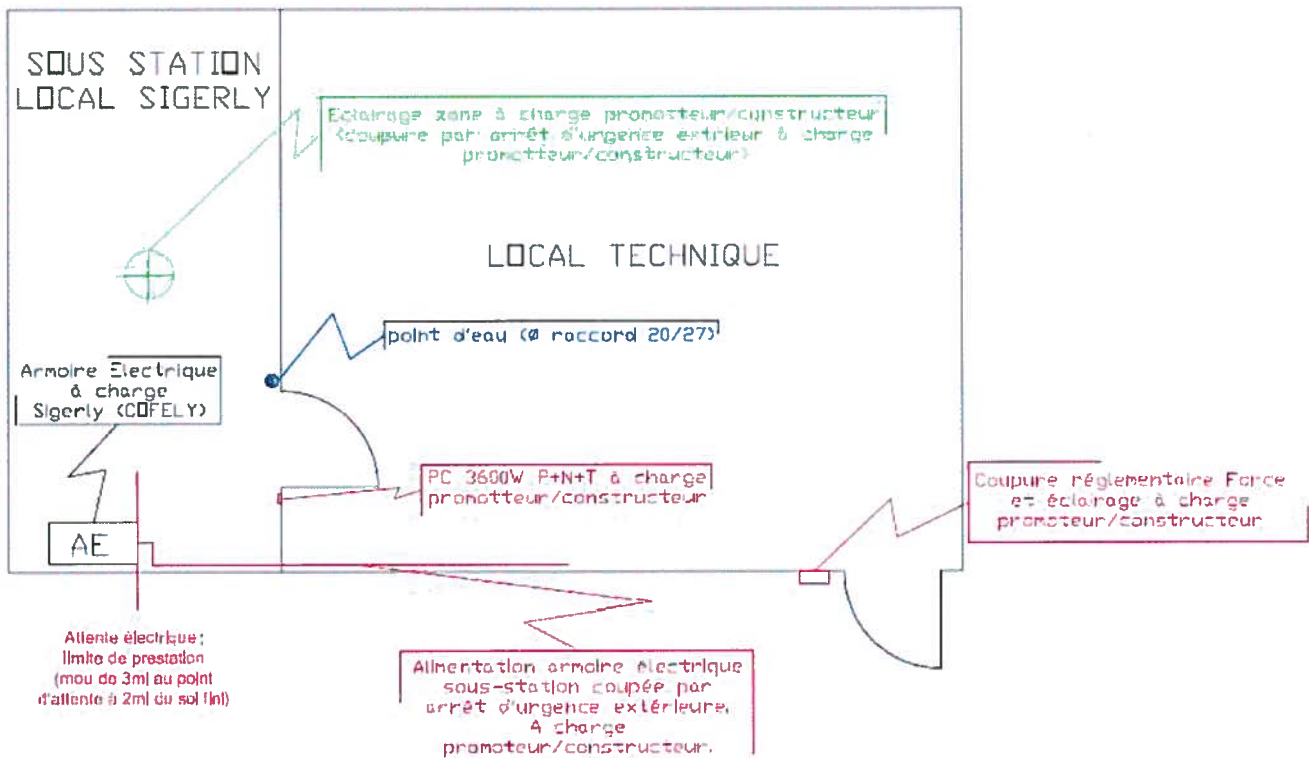 SOUS STATION
LOCAL SIGERLY
Eclairage zone à charge promotteur/constructeur
(coupure par arrêt d'urgence extrieur à charge
promotteur/constructeur)
LOCAL TECHNIQUE
point d'eau (Ø raccord 20/27)
Armoire Electrique
à charge
Sigerly (COFELY)
PC 3600W P+N+T à charge
promotteur/constructeur
Coupure réglementaire Force
et éclairage à charge
promoteur/constructeur
AE
Attente électrique;
limite de prestation
(mou de 3ml au point
d'attente à 2ml du sol fini)
Alimentation armoire électrique
sous-station coupée par
arrêt d'urgence extérieure.
A charge
promoteur/constructeur.